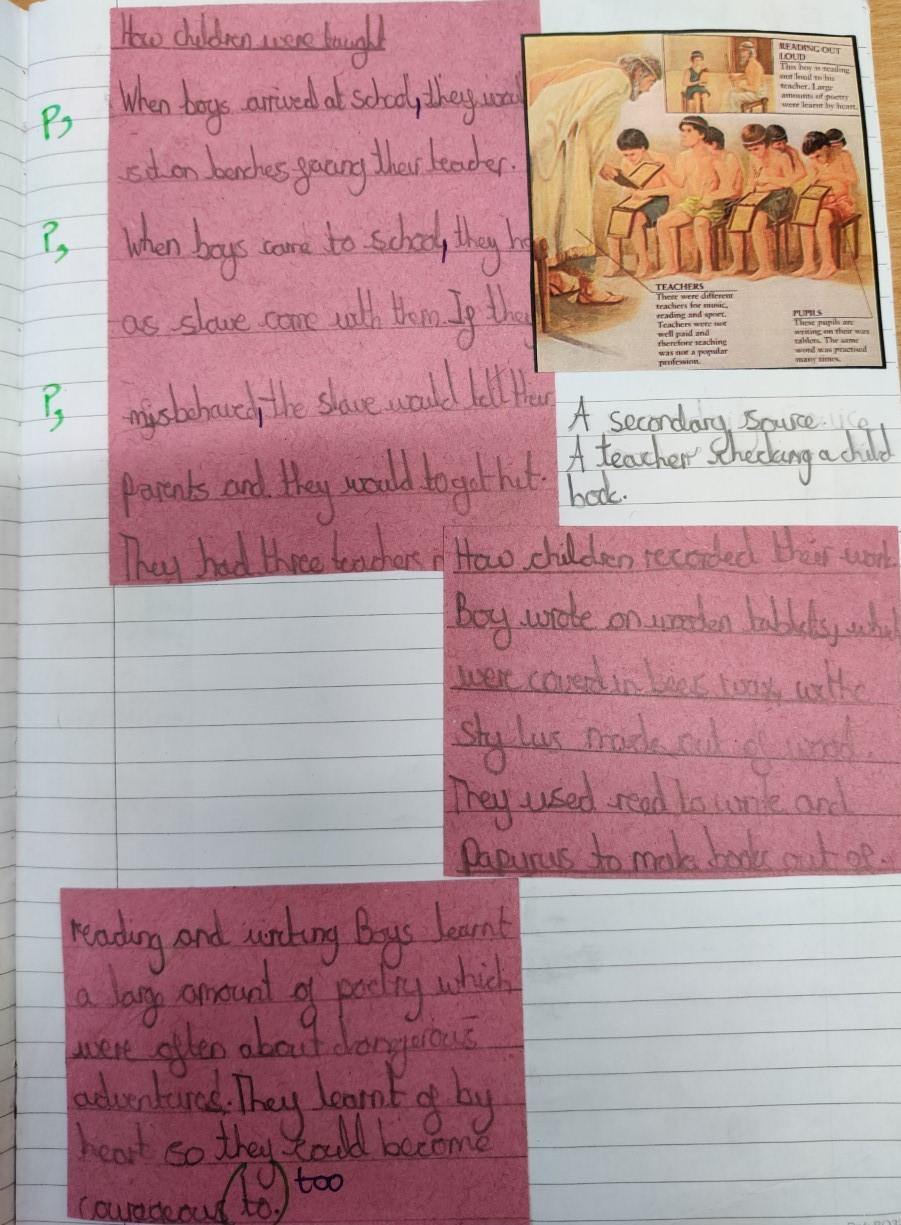 How children were taught
P,
When boys arrived at school, they
sit on benches facing their teacher.
P,
When boys came to school, they
as slave come with them. If they
P,
misbehaved, the slave would tell their
parents and they would to get hit.
They had three teachers
READING OUT
LOUD
This boy is reading
out loud to his
teacher. Large
amounts of poetry
were learnt by heart.
TEACHERS
There were different
teachers for music,
reading and sport.
Teachers were not
well paid and
therefore teaching
was not a popular
profession.
PUPILS
These pupils are
writing on their wax
tablets. The same
word was practised
many times.
A secondary source.
A teacher checking a child
book.
How children recorded their work
Boy wrote on wooden tablets,
were coverd in bees wax,
stylus made out of wood.
They used read to write and
Papurus to make books out of.
reading and writing Boys learnt
a large amount of poetry which
were often about dangerous
adventures. They learnt of by
heart so they could become
courageous to. too